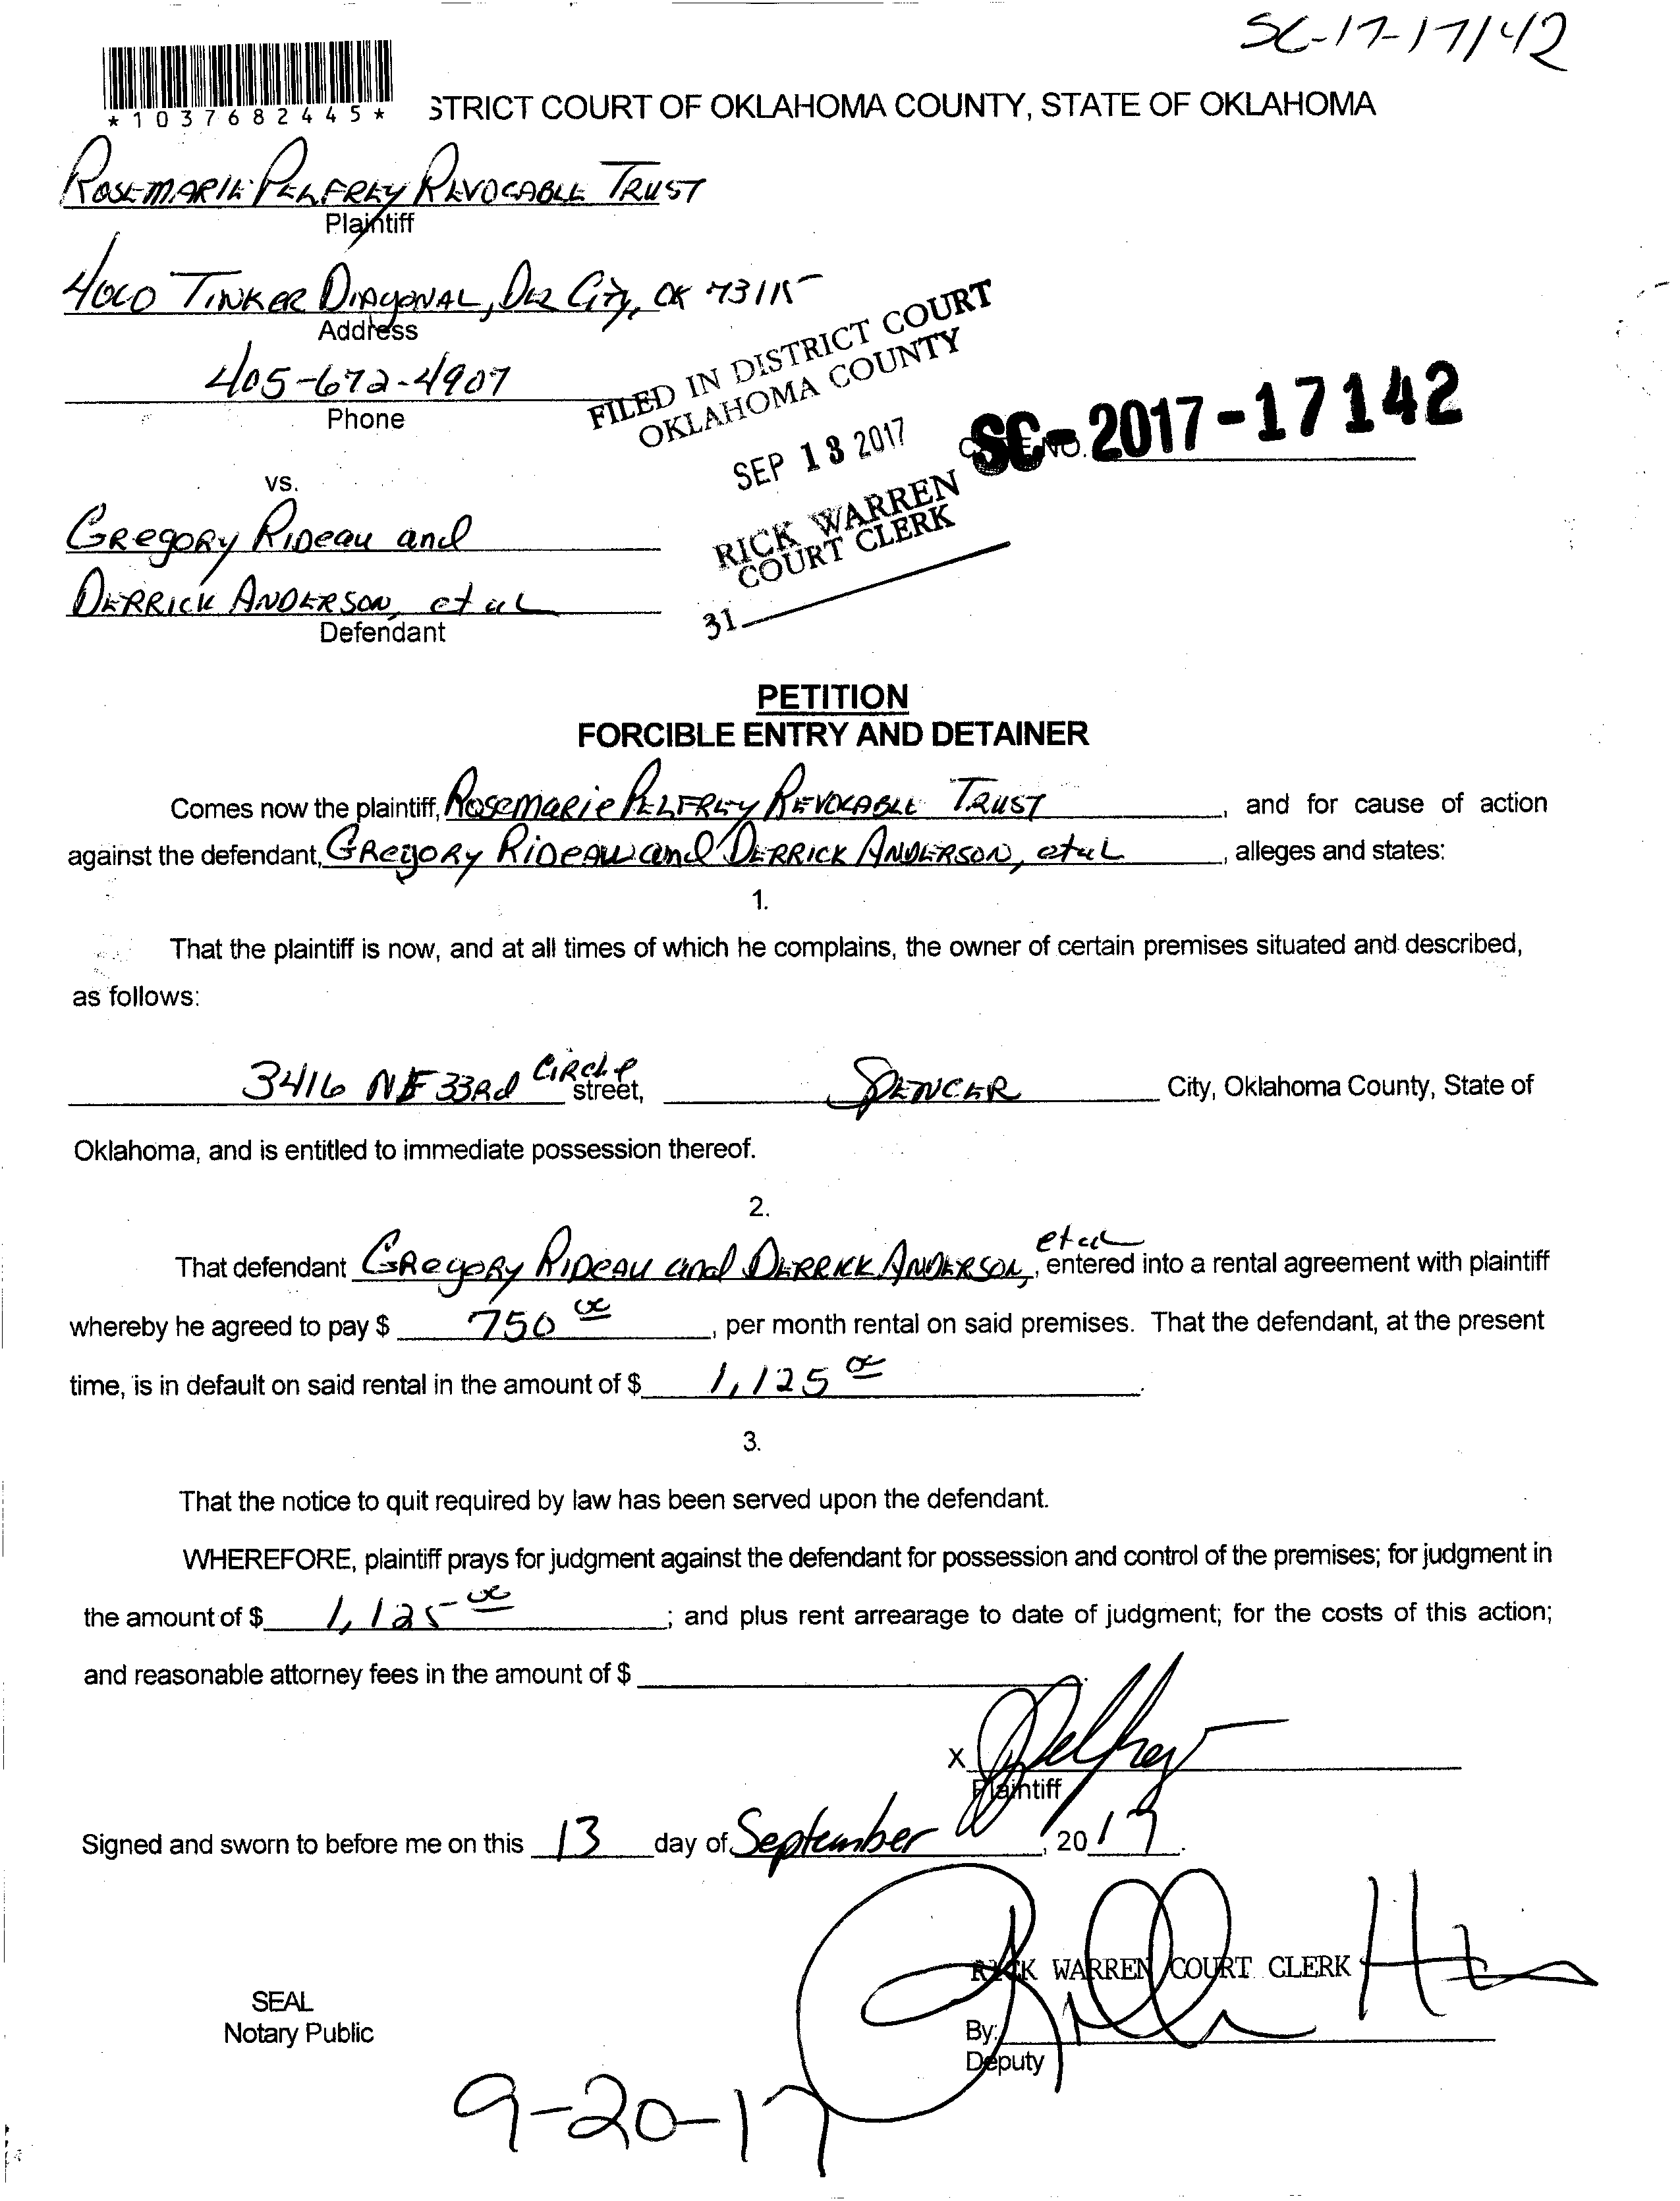 SC-17-17142
*1037682445*
STRICT COURT OF OKLAHOMA COUNTY, STATE OF OKLAHOMA
ROSEMARIE PELFREY REVOCABLE TRUST
Plaintiff
4000 TINKER DIAGONAL, DEL City, OK 73115
Address
405-672-4907
Phone
FILED IN DISTRICT COURT
OKLAHOMA COUNTY
SEP 13 2017
SC-2017-17142
NO.
RICK WARREN
COURT CLERK
31
vs.
GREGORY RIDEAU and
DERRICK ANDERSON, et al
Defendant
PETITION
FORCIBLE ENTRY AND DETAINER
Comes now the plaintiff, Rosemarie PELFREY REVOCABLE TRUST, and for cause of action
against the defendant, GREGORY RIDEAU and DERRICK ANDERSON, et al, alleges and states:
1.
That the plaintiff is now, and at all times of which he complains, the owner of certain premises situated and described,
as follows:
3416 NE 33Rd CIRCLE street, SPENCER City, Oklahoma County, State of
Oklahoma, and is entitled to immediate possession thereof.
2.
That defendant GREGORY RIDEAU and DERRICK ANDERSON, et al, entered into a rental agreement with plaintiff
whereby he agreed to pay $ 750 00, per month rental on said premises. That the defendant, at the present
time, is in default on said rental in the amount of $ 1,125 00.
3.
That the notice to quit required by law has been served upon the defendant.
WHEREFORE, plaintiff prays for judgment against the defendant for possession and control of the premises; for judgment in
the amount of $ 1,125 00; and plus rent arrearage to date of judgment; for the costs of this action;
and reasonable attorney fees in the amount of $
X Pelfrey
Plaintiff
Signed and sworn to before me on this 13 day of September, 2017.
RICK WARREN COURT CLERK
SEAL
Notary Public
By:
Deputy
9-20-17